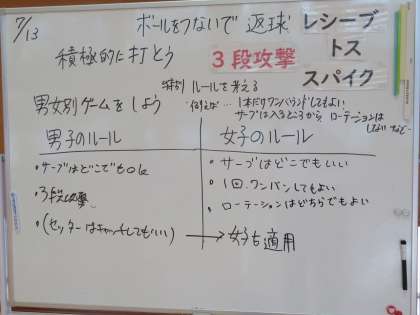 7/13
ボールをつないで 返球
レシーブ
トス
スパイク
積極的に打とう
3段攻撃
特別 ルールを考える
例えば… 1本だけワンバウンドしてもよい
サーブは入るところから ローテーションは
しない など…
男女別ゲームをしよう
男子のルール
・サーブはどこでもok
・3段攻撃
・(セッターはキャッチしてもいい) → 女子も適用
女子のルール
・サーブはどこでもいい
・1回.ワンバンしてもよい
・ローテーションはどちらでもよい